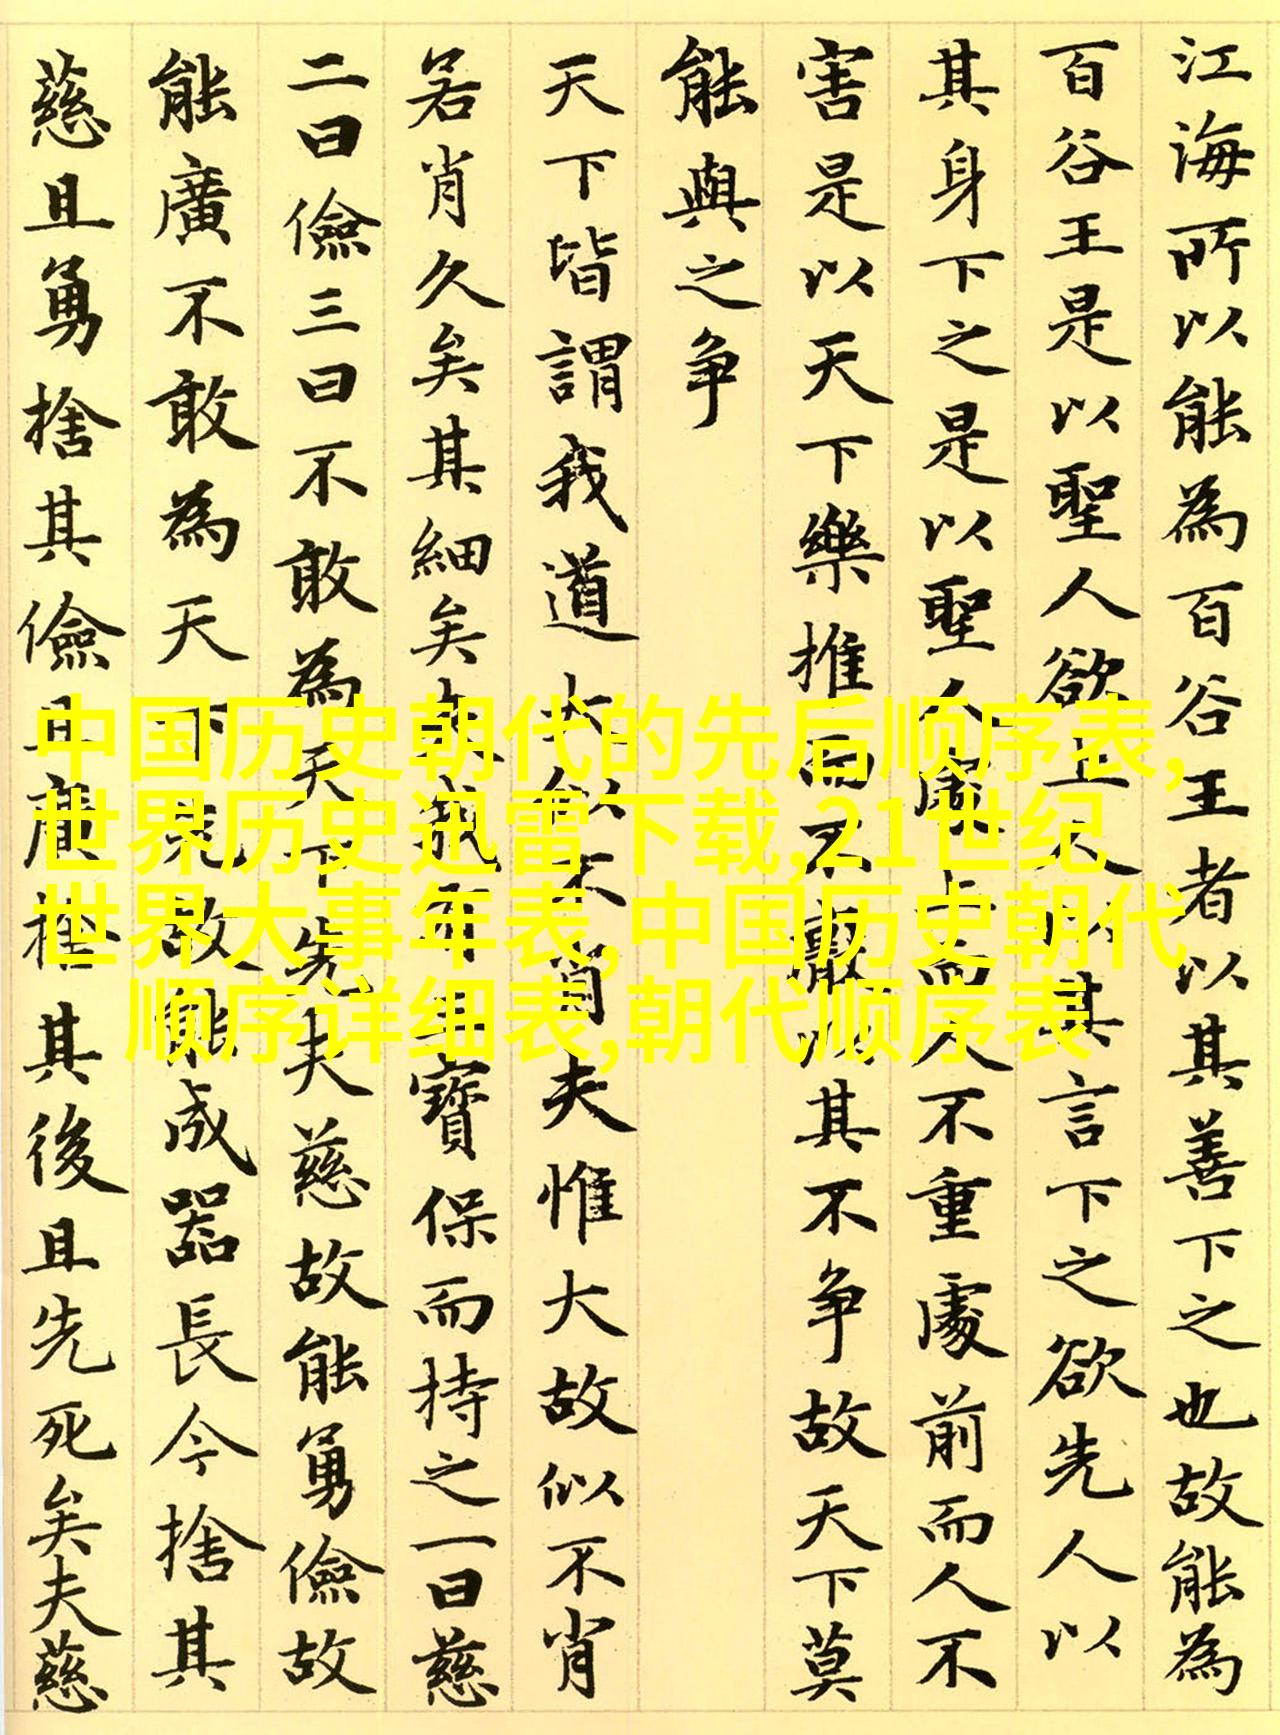 江海所以能為百谷王者以其善下之也故能為
百谷王是以聖人欲上人以其言下之欲先人以
其身下之是以聖人處上而人不重處前而人不
害是以天下樂推而不厭以其不争故天下莫
能與之争
天下皆謂我道大似不肖夫惟大故似不肖
若肖久矣其細矣夫我有三寶保而持之一曰慈
二曰儉三曰不敢為天下先夫慈故能勇儉故
能廣不敢為天下先故能成器長今捨其
慈且勇捨其儉且廣捨其後且先死矣夫慈
中国历史朝代的先后顺序表,
世界历史迅雷下载,21世纪
世界大事年表,中国历史朝代
顺序详细表,朝代顺序表